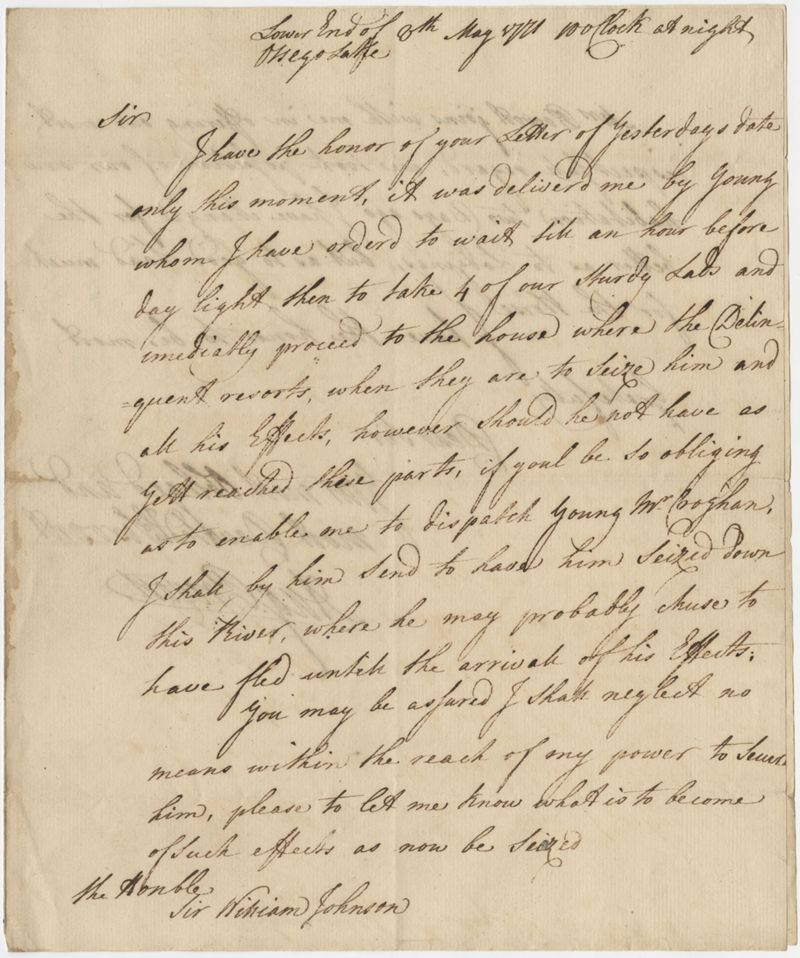 Lower End of 8th May 1771 10 oClock at night
Otsego Lake
Sir
I have the honor of your Letter of Yesterdays date
only this moment, it was deliverd me by Young
whom I have orderd to wait till an hour before
day light then to take 4 of our Sturdy Lads and
imediatly proceed to the house where the Delin=
=quent resorts, when they are to Seize him and
all his Effects, however should he not have as
Yett reached these parts, if youl be so obliging
as to enable me to dispatch Young Mr. Croghan,
I shall by him send to have him Seized down
this River, where he may probably chuse to
have fled untill the arrivall of his Effects:
You may be assured I shall neglect no
means within the reach of my power to Secure
him, please to let me know what is to become
of such effects as now be Seized
the Honble
Sir William Johnson